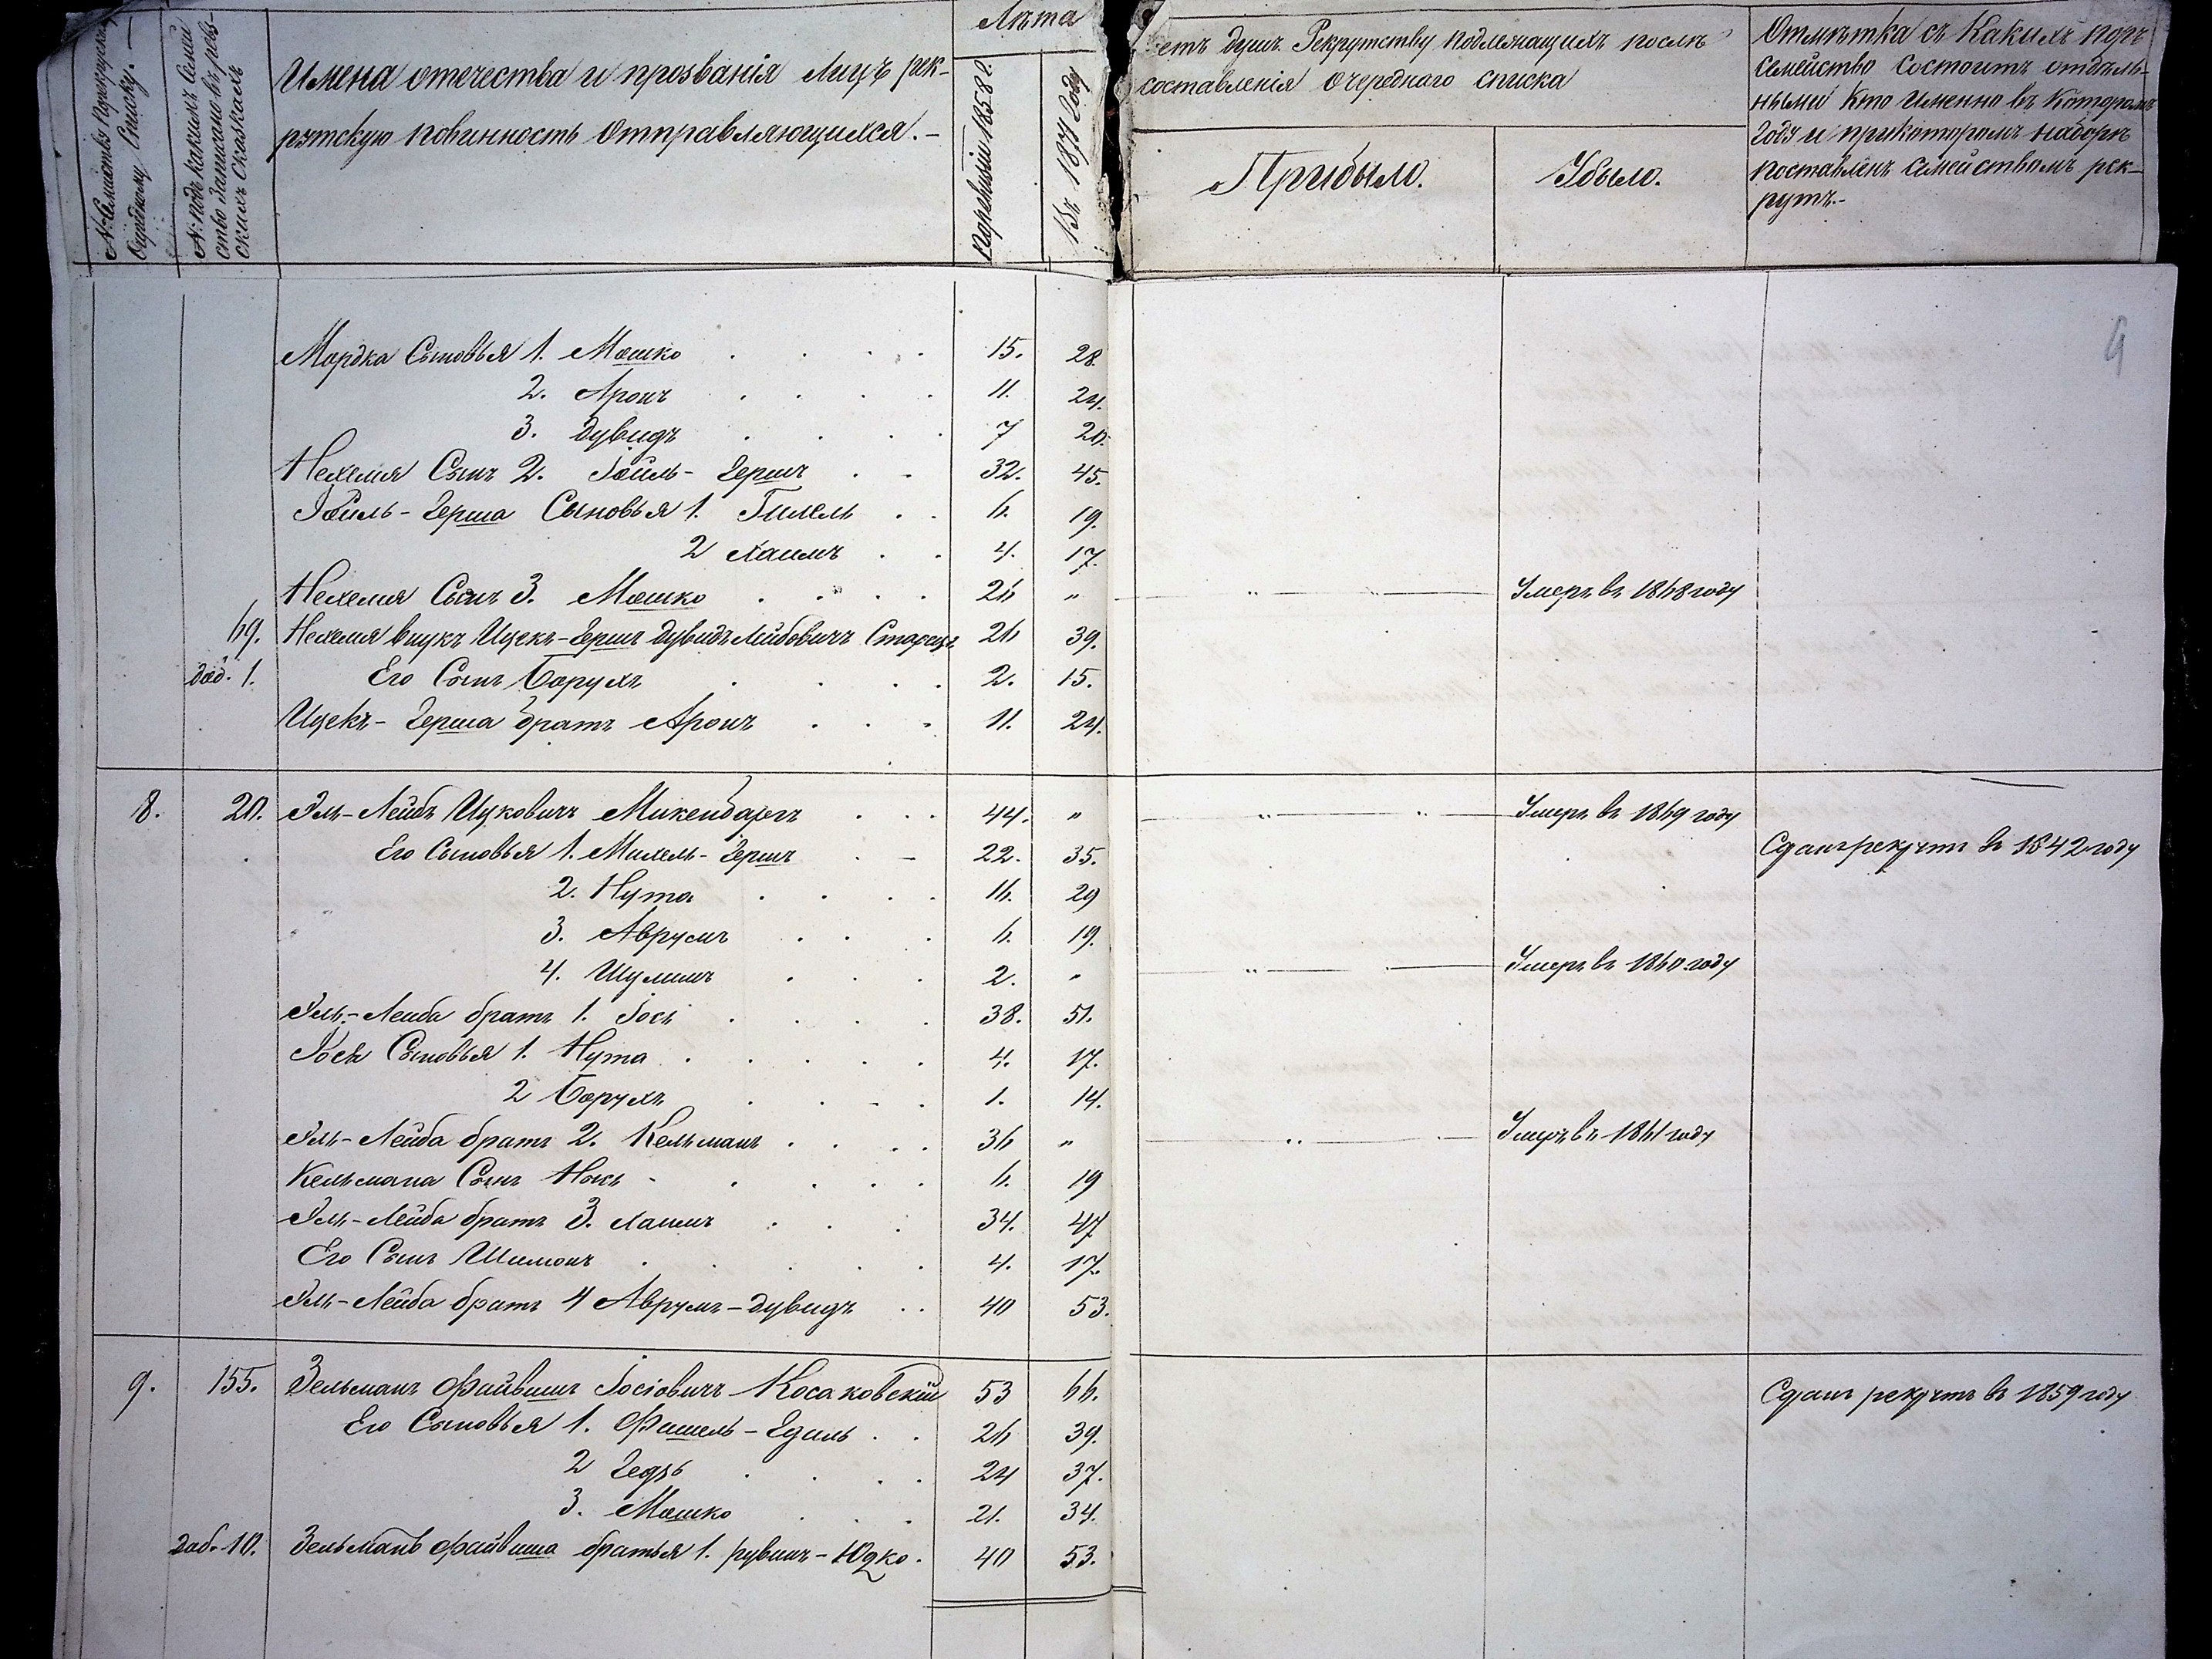 № Семействъ по рекрутскому
Очередному Списку. —
№ подъ какимъ Семей-
ство записано въ реви-
скихъ Сказкахъ
Имена отечества и прозванія лицъ рек-
рутскую повинность отправляющихся. –
Лѣта
по ревизіи 1858 г.
Въ 1871 Году
етъ душъ Рекрутству подлежащихъ послѣ
составленія Очереднаго списка
Прибыло.
Убыло.
Отмѣтка съ Какихъ поръ
Семейство Состоитъ отдѣль-
нымъ Кто Именно въ Которомъ
Году и прикоторомъ наборѣ
поставленъ Семействомъ рек-
рутъ.-
9
Мордка Сыновья 1. Мошко 15. 28.
2. Аронъ 11. 24.
3. Дувидъ 7 20.
Нехемія Сынъ 2. Іойль-Гершъ 32. 45.
Іойль-Герша Сыновья 1. Гилель 6. 19.
2 Хаимъ 4. 17.
Нехемія Сынъ 3. Мошко 26 " Умеръ въ 1868 году
69. Нехемія внукъ Ицекъ-Гершъ Дувидъ Лейбовичъ 26 39.
доб. 1. Его Сынъ Борухъ 2. 15.
Ицекъ-Герша братъ Аронъ 11. 24.
8. 20. Эль-Лейбъ Ицковичъ 44. " Умеръ въ 1869 году
Его Сыновья 1. Михель-Гершъ 22. 35. Сданъ рекрутъ въ 1842 году
2. Нута 16. 29
3. Аврумъ 6. 19.
4. Шулимъ 2. " Умеръ въ 1860 году
Эль-Лейба братъ 1. Іось 38. 51.
Іося Сыновья 1. Нута 4. 17.
2 Борухъ 1. 14.
Эль-Лейба братъ 2. Кельманъ 36 " Умеръ въ 1861 году
Кельмана Сынъ 6. 19
Эль-Лейба братъ 3. Хаимъ 34. 47
Его Сынъ Шимонъ 4. 17.
Эль-Лейба братъ 4 Аврумъ-Дувидъ 40 53.
9. 155. Зельманъ Файвишъ Іосіовичъ Косаковскій 53 66. Сданъ рекрутъ въ 1859 году
Его Сыновья 1. Фишель-Едаль 26 39.
2 24 37.
3. Мошко 21. 34.
доб. 10. Зельманъ Файвиша братья 1. Рувинъ-Юдко. 40 53.